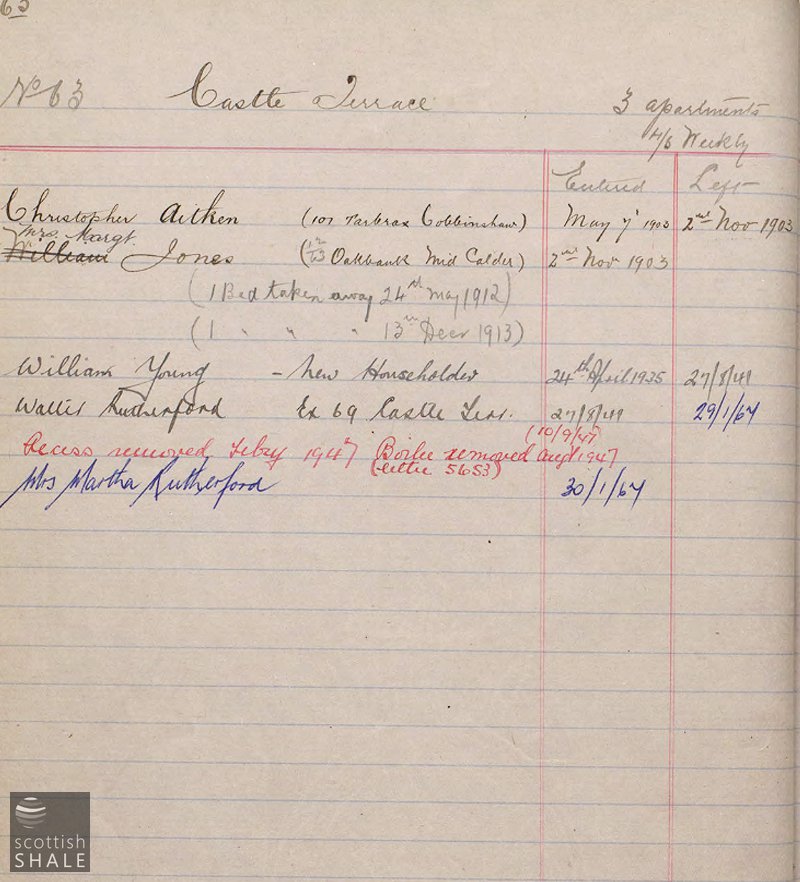 63
No 63 Castle Terrace 3 apartments
4/3 Weekly
Entered Left
Christopher Aitken (101 Tarbrax Cobbinshaw) May 7 1903 2nd Nov 1903
Mrs. Margt.
William Jones (Oakbank Mid Calder) 2nd Nov 1903
(1 Bed taken away 24th May 1912)
(1 " " " 13th Decr 1913)
William Young - New Householder 24th April 1935 27/8/41
Walter Rutherford Ex 69 Castle Terr. 27/8/41 29/1/67
(10/9/47)
Access removed Febry 1947 Boiler removed Aug 1947
(letter 5653)
Mrs Martha Rutherford 30/1/67
scottish
SHALE